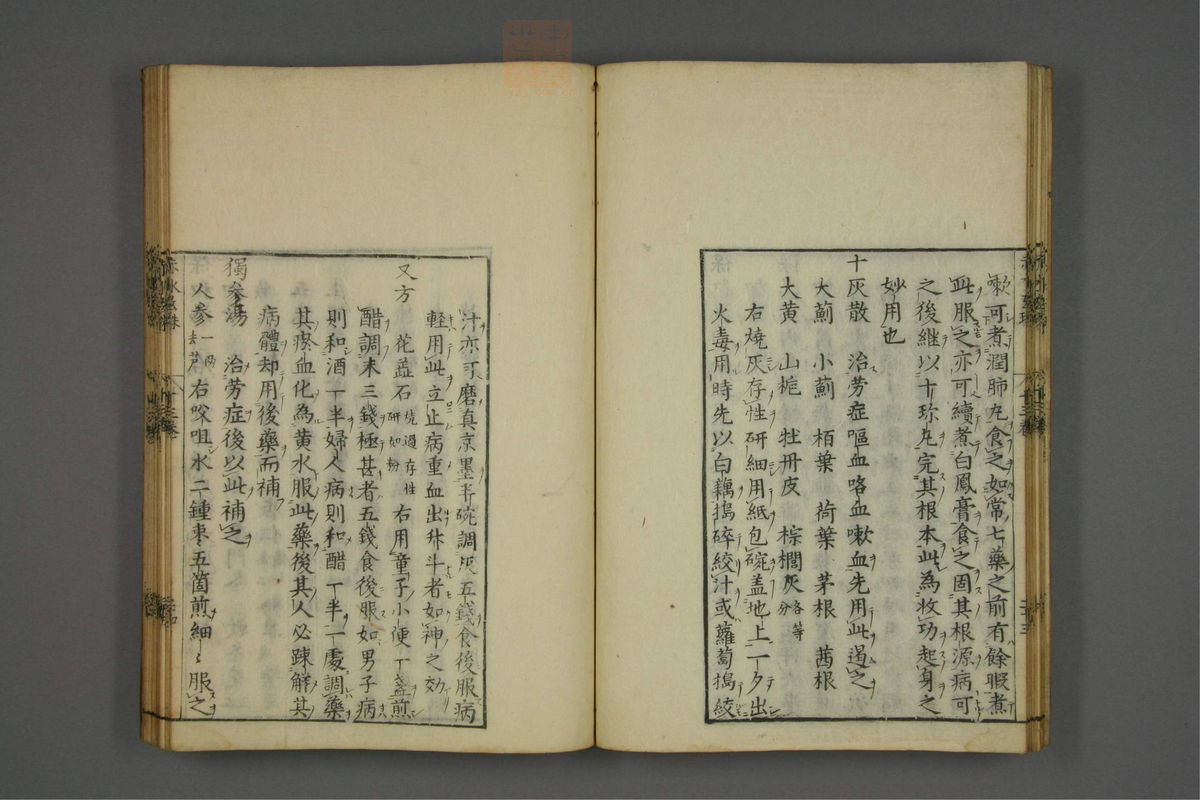 嗽可煮潤肺丸食之如常七藥之前有餘暇煮
此服之亦可續煮白鳳膏食之固其根源病可
之後継以十珎丸完其根本此為收功起身之
妙用也
十灰散　治労症嘔血咯血嗽血先用此遏之
大薊　小薊　栢葉　荷葉　茅根　茜根
大黄　山梔　牡丹皮　棕櫚灰各等分
右燒灰存性研細用紙包碗盖地上一夕出
火毒用時先以白藕搗碎絞汁或蘿蔔搗絞
汁亦可磨真京墨半碗調灰五錢食後服病
輕用此立止病重血出升斗者如神之効
又方　花蕋石燒過存性研如粉　右用童子小便一盏煎
醋調末三錢極甚者五錢食後服如男子病
則和酒一半婦人病則和醋一半一處調藥
其瘀血化為黄水服此藥後其人必踈解其
病體却用後藥而補
獨參湯　治労症後以此補之
人參一兩却芦　右㕮咀水二鍾枣五箇煎細〻服之